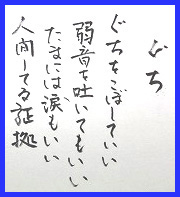 ぐち
ぐちをこぼしていい
弱音を吐いてもいい
たまには、涙もいい
人間してる証拠